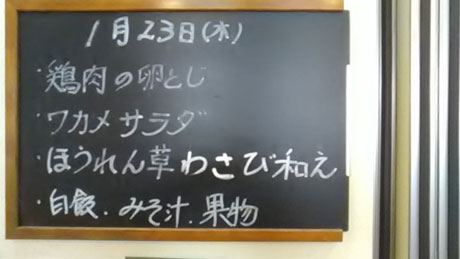 1月23日(水)
・鶏肉の卵とじ
・ワカメサラダ
・ほうれん草わさび和え
・白飯.みそ汁.果物